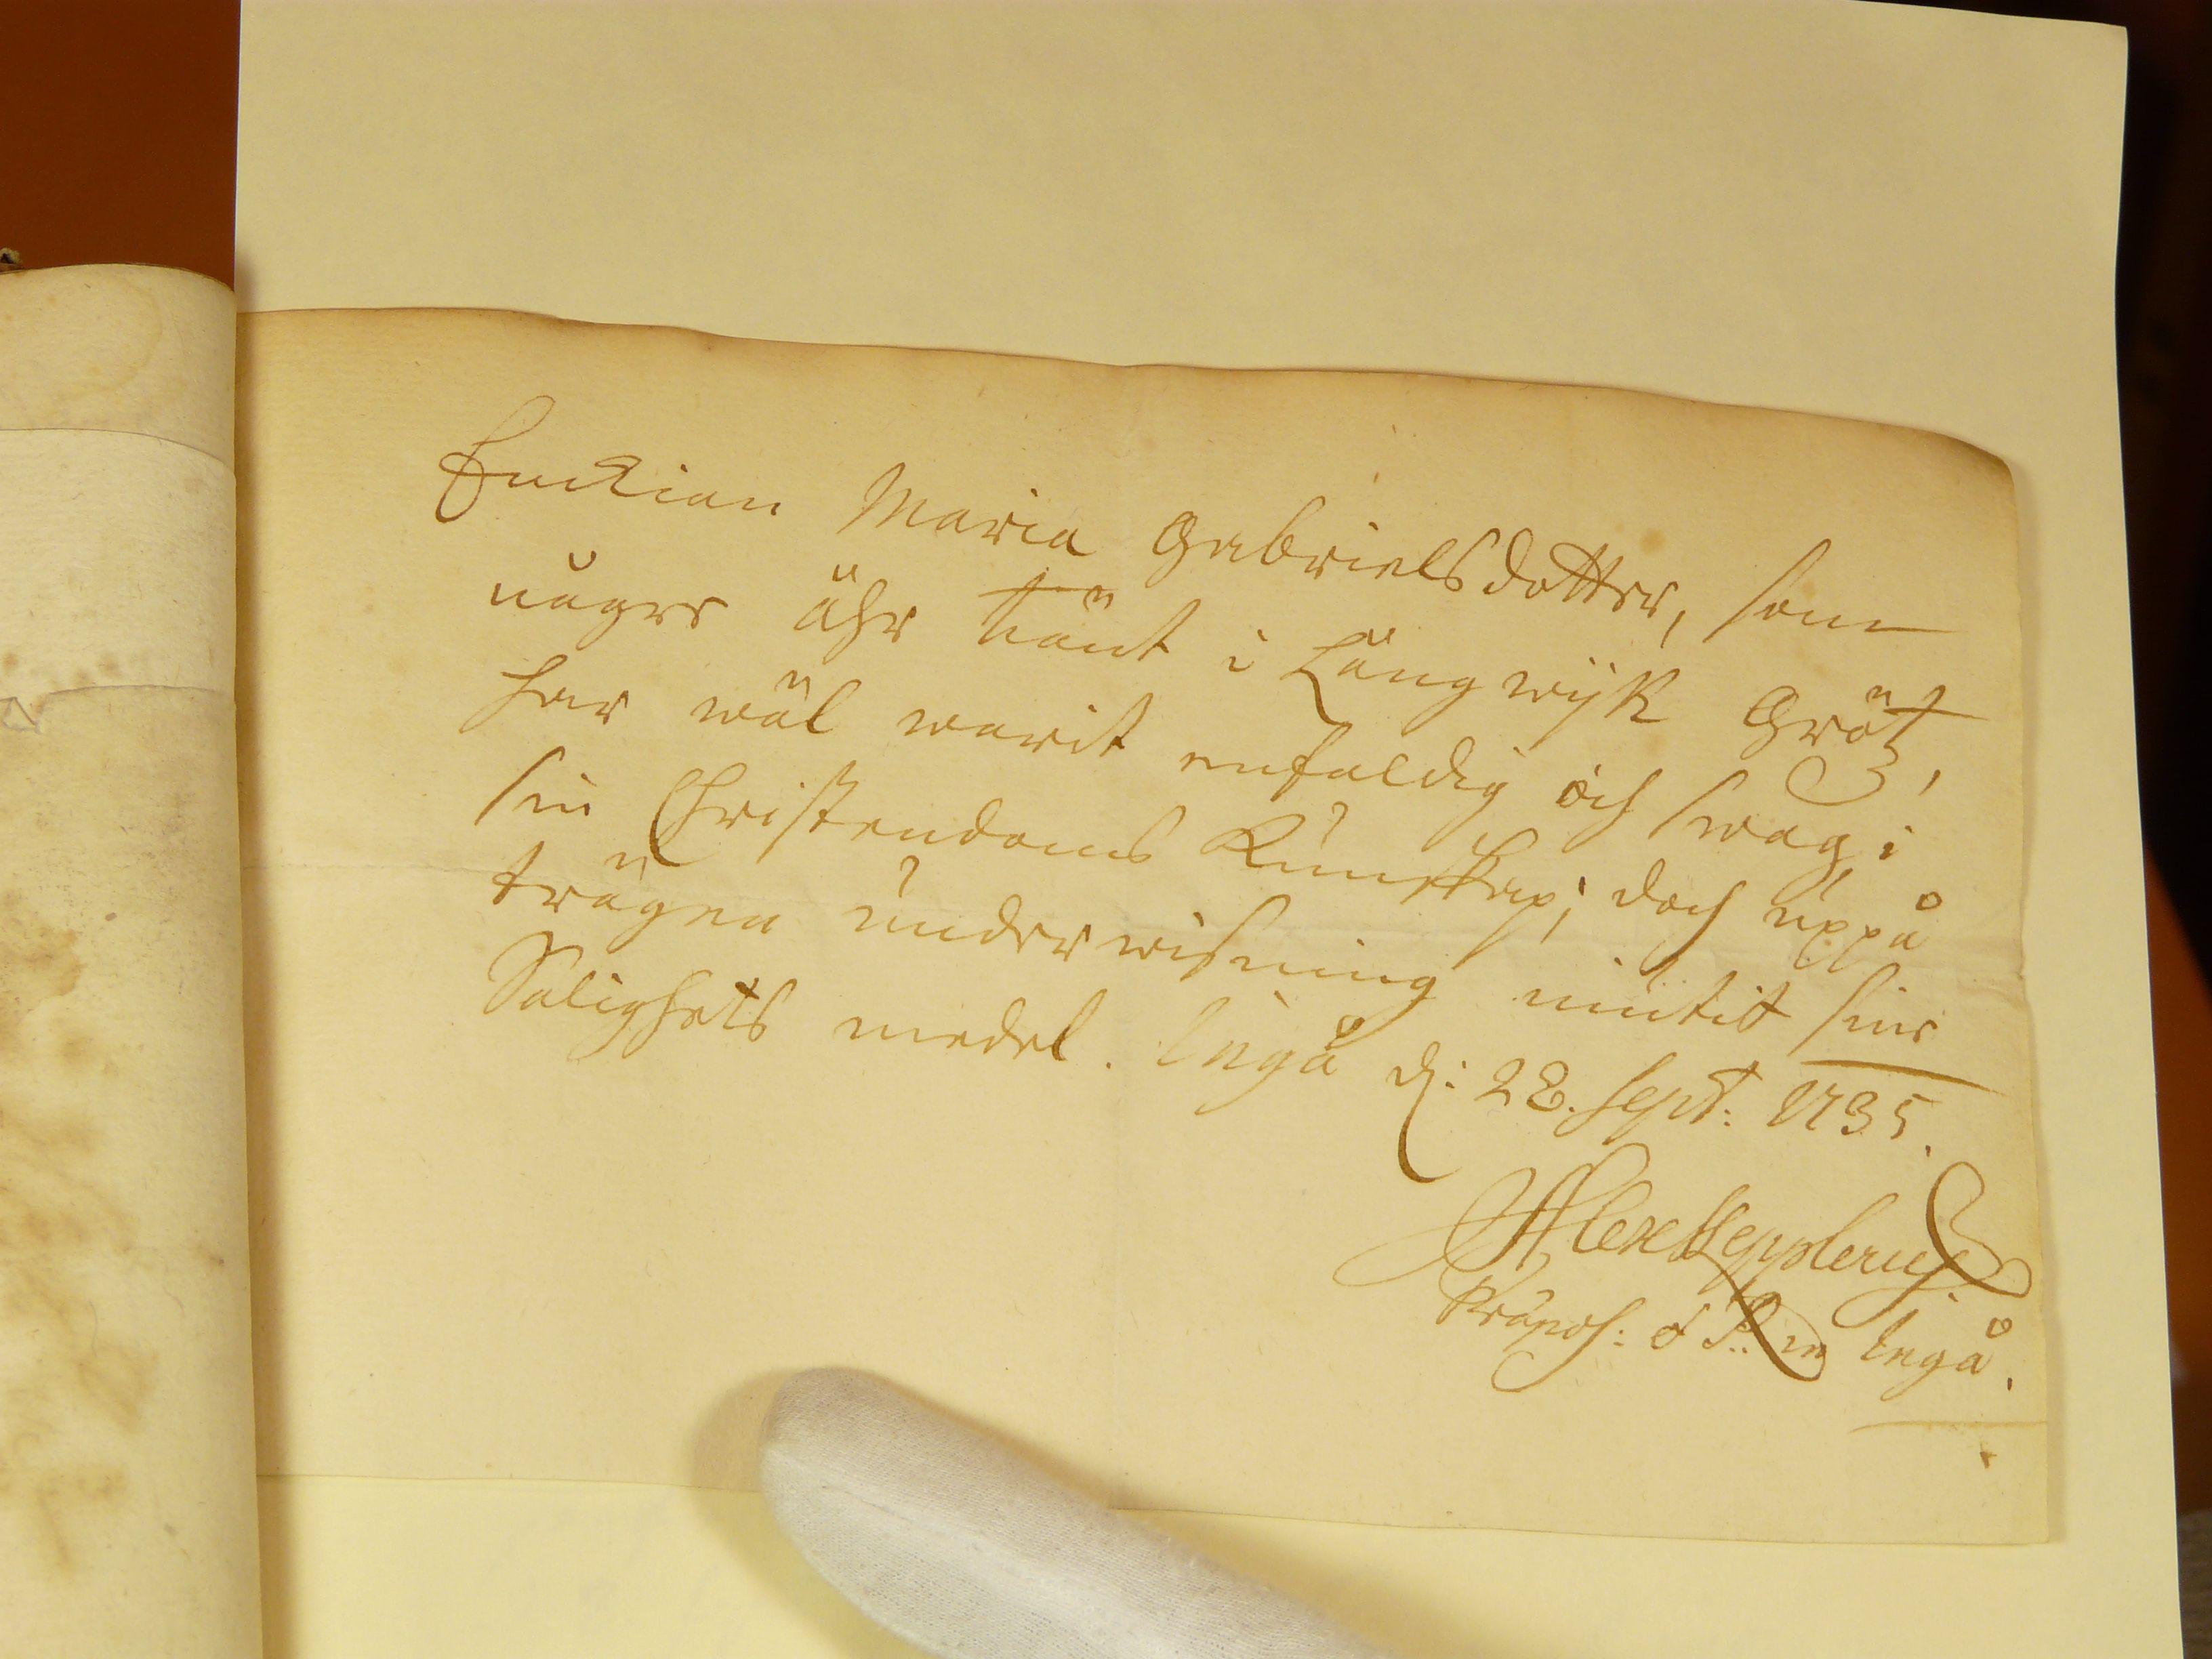 Enckian Maria Gabrielsdotter, som
någre åhr tiänt i Långwijk Grötz,
har wäl warit enfaldig och swag i
sin Christendoms Kunskap; doch uppå
trägen underwisning niutit sine
Salighets medel. Ingå d: 28. Sept: 1735.
Alex Kepplerus
Præpos: & P. in Ingå.